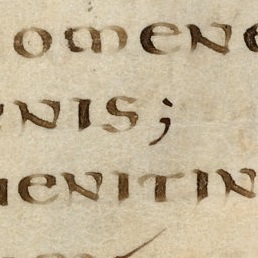 omene
nis;
uenitin